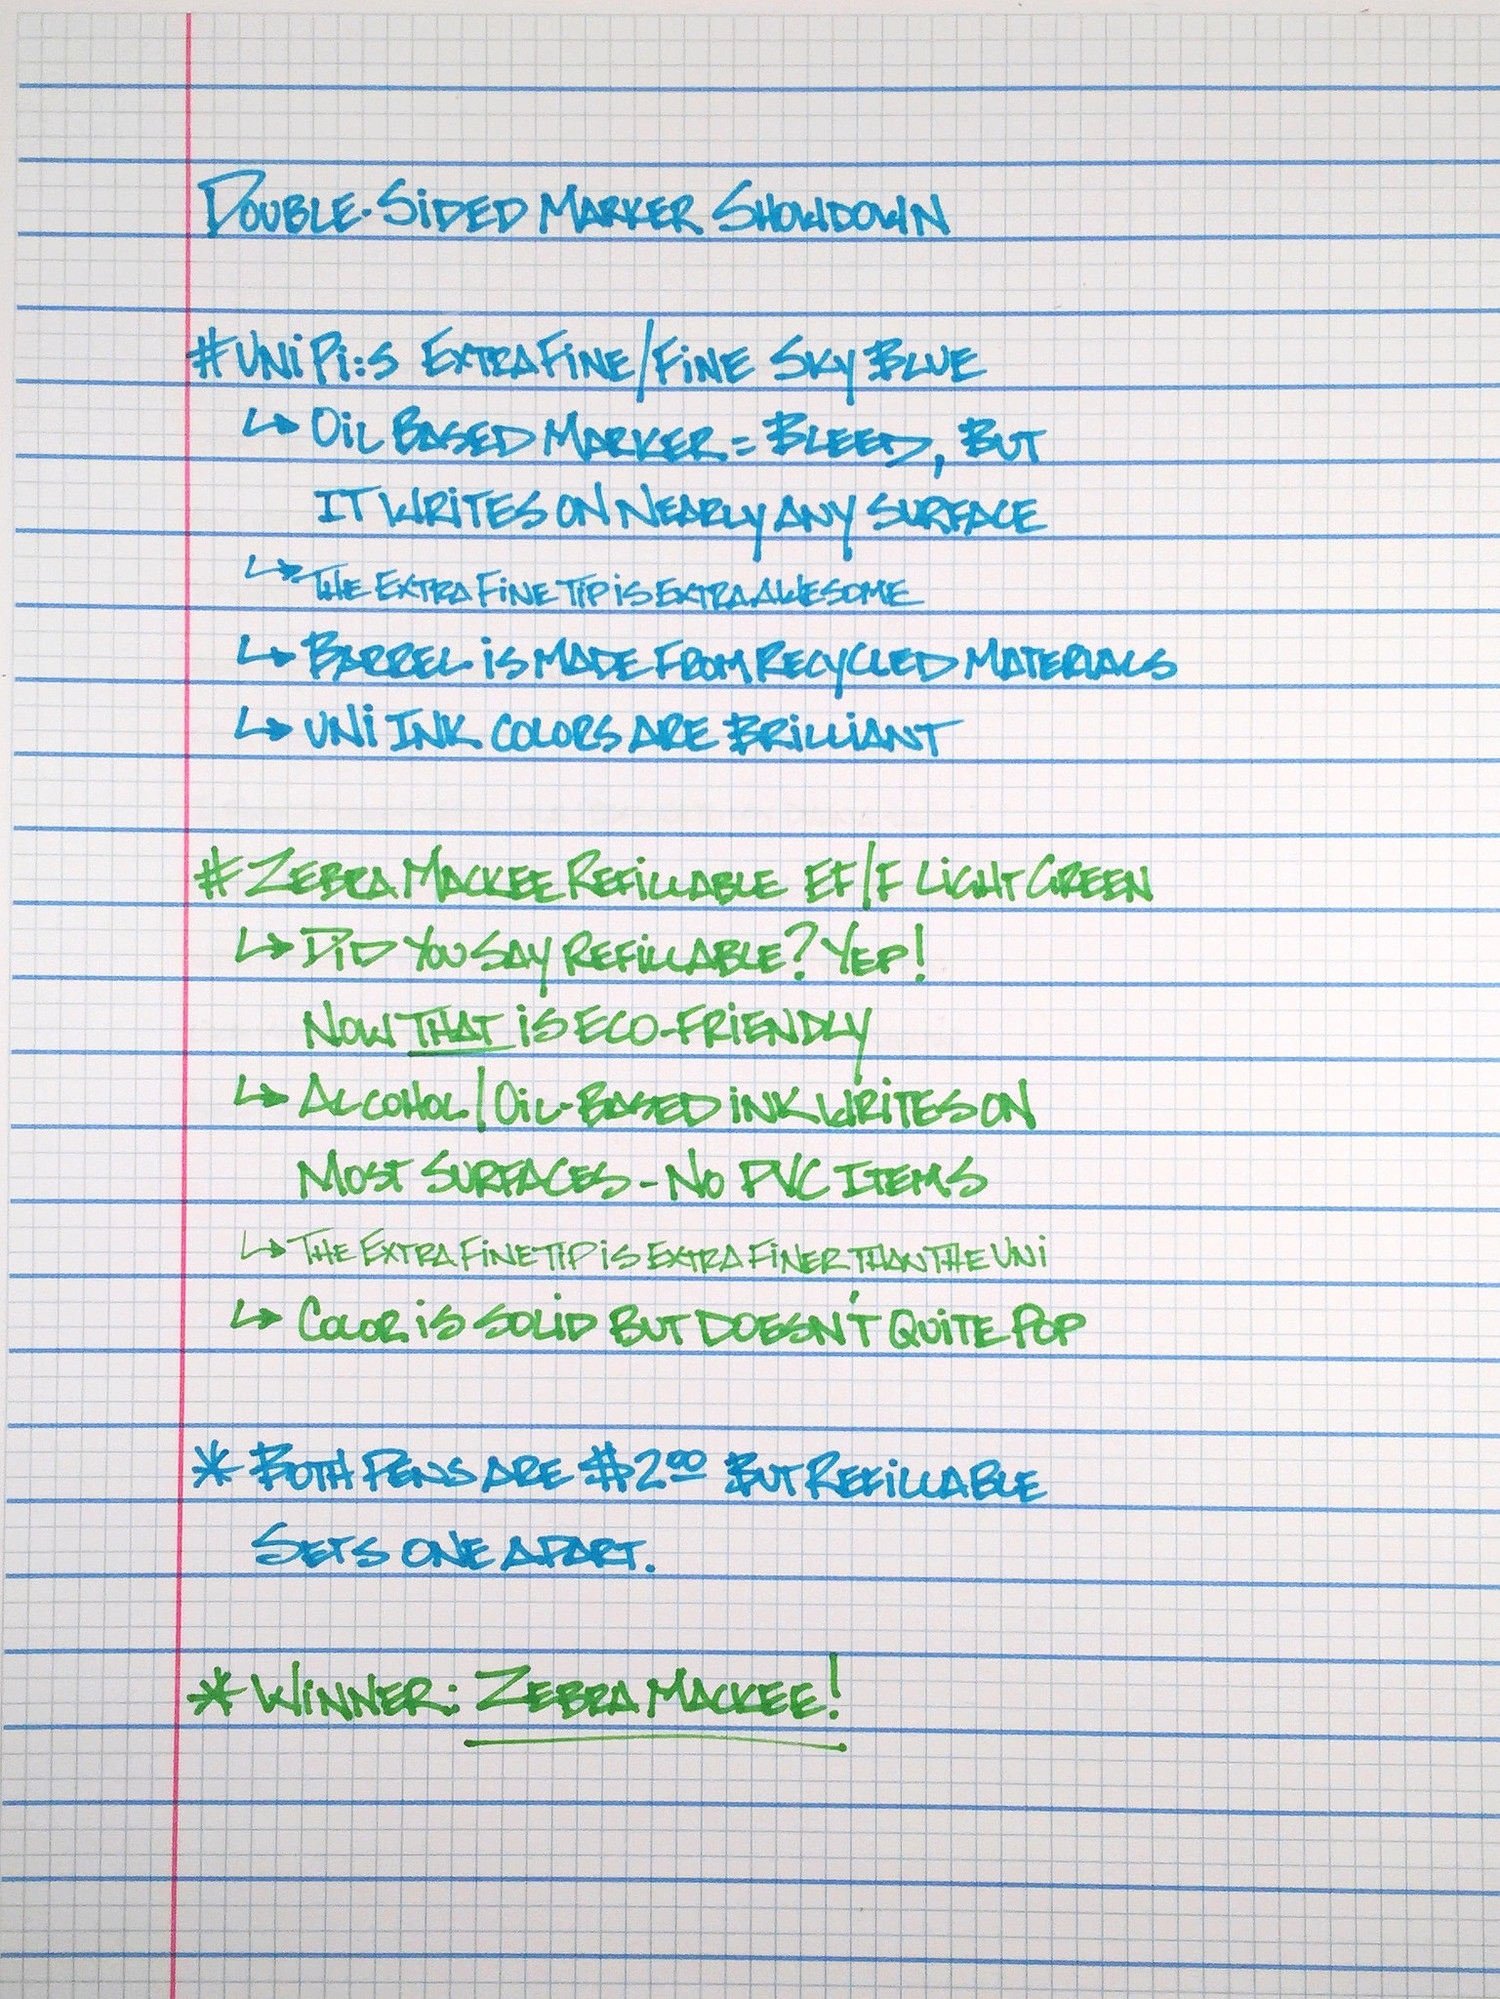 Double-Sided Marker Showdown
# Uni Pi:s Extra Fine/Fine Sky Blue
↳ Oil Based Marker = Bleed, But
it writes on nearly any surface
↳ The Extra Fine Tip is Extra Awesome
↳ Barrel is made from recycled materials
↳ Uni Ink colors are Brilliant
# Zebra Mackee Refillable EF/F Light Green
↳ Did You Say Refillable? Yep!
Now that is eco-friendly
↳ Alcohol/Oil-Based ink writes on
Most Surfaces - No PVC Items
↳ The Extra Fine Tip is Extra Finer than the Uni
↳ Color is solid but doesn't quite pop
* Both Pens are $2.00 But Refillable
Sets one apart.
* Winner: Zebra Mackee!